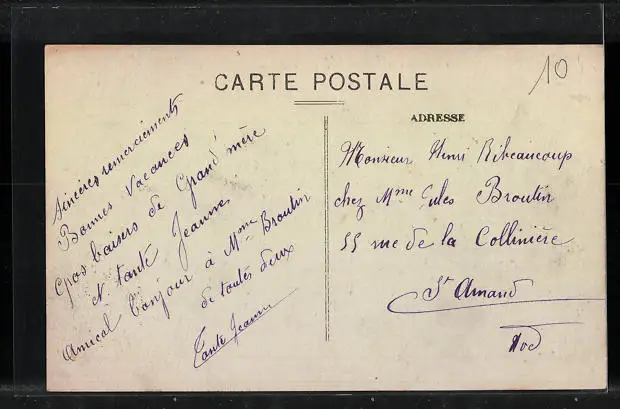 CARTE POSTALE
10
Sincères remerciements
Bonnes Vacances
Gros baisers de Grand'mère
et tante Jeanne
Amical bonjour à Mme Broutin
de toutes deux
Tante Jeanne
ADRESSE
Monsieur Henri Ribeaucoup
chez Mme Jules Broutin
55 rue de la Collinière
St Amand
Nod